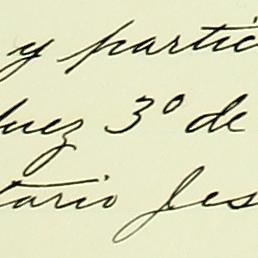 y partic
Juez 3º de
tario Jes